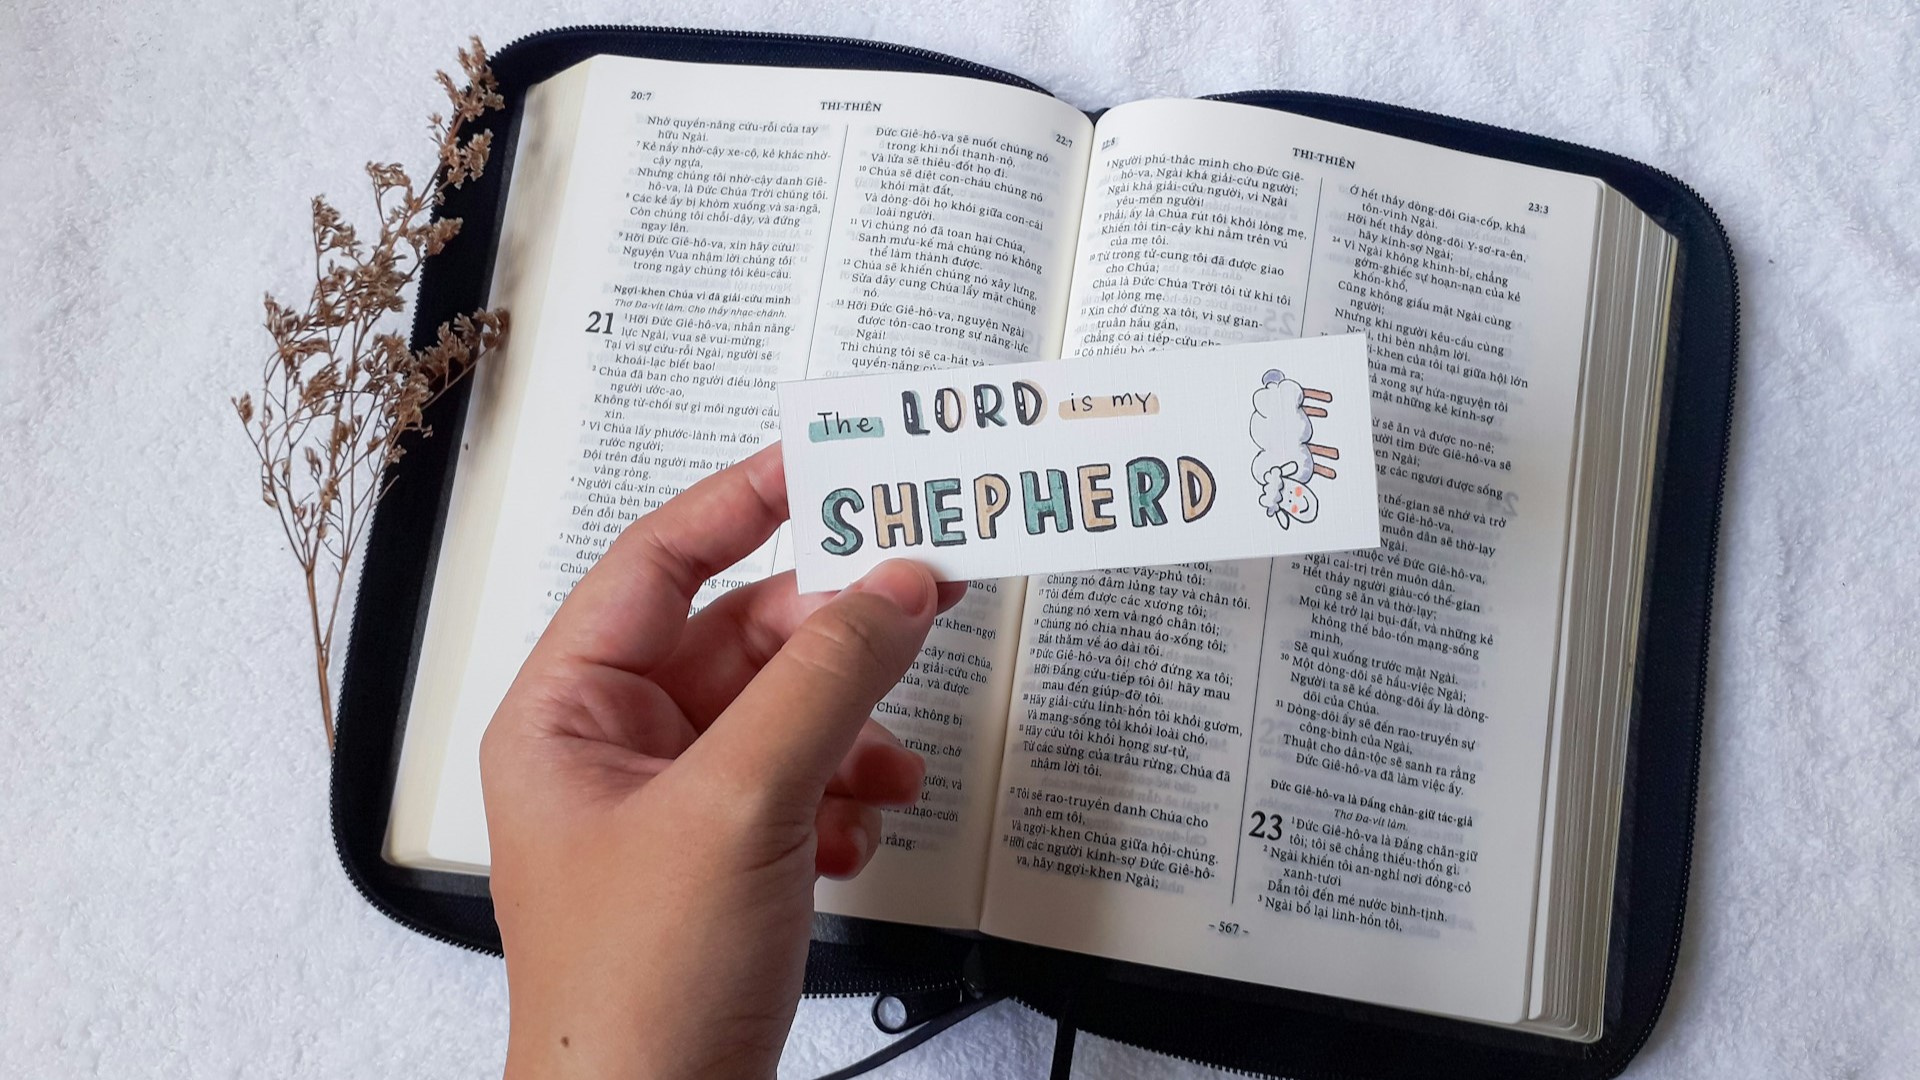 20:7
THI-THIÊN
Nhờ quyền-năng cứu-rỗi của tay
hữu Ngài.
⁷ Kẻ nầy nhờ-cậy xe-cộ, kẻ khác nhờ-
cậy ngựa,
Nhưng chúng tôi nhờ-cậy danh Giê-
hô-va, là Đức Chúa Trời chúng tôi.
⁸ Các kẻ ấy bị khòm xuống và sa-ngã,
Còn chúng tôi chổi-dậy, và đứng
ngay lên.
⁹ Hỡi Đức Giê-hô-va, xin hãy cứu!
Nguyện Vua nhậm lời chúng tôi
trong ngày chúng tôi kêu-cầu.
Ngợi-khen Chúa vì đã giải-cứu mình
Thơ Đa-vít làm. Cho thầy nhạc-chánh.
21 ¹Hỡi Đức Giê-hô-va, nhân năng-
lực Ngài, vua sẽ vui-mừng;
Tại vì sự cứu-rỗi Ngài, người sẽ
khoái-lạc biết bao!
² Chúa đã ban cho người điều lòng
người ước-ao,
Không từ-chối sự gì môi người cầu
xin.
(Sê-
³ Vì Chúa lấy phước-lành mà đón
rước người;
Đội trên đầu người mão triều
vàng ròng.
⁴ Người cầu-xin cùng
Chúa bèn ban
Đến đỗi ban
đời đời
⁵ Nhờ sự
được
Chúa
22:7
Đức Giê-hô-va sẽ nuốt chúng nó
trong khi nổi thạnh-nộ,
Và lửa sẽ thiêu-đốt họ đi.
¹⁰ Chúa sẽ diệt con-cháu chúng nó
khỏi mặt đất,
Và dòng-dõi họ khỏi giữa con-cái
loài người.
¹¹ Vì chúng nó đã toan hại Chúa,
Sanh mưu-kế mà chúng nó không
thể làm thành được.
¹² Chúa sẽ khiến chúng nó xây lưng,
Sửa dây cung Chúa lẩy mặt chúng
nó.
¹³ Hỡi Đức Giê-hô-va, nguyện Ngài
được tôn-cao trong sự năng-lực
Ngài!
Thì chúng tôi sẽ ca-hát và
quyền-năng
khen-ngợi
-cậy nơi Chúa,
giải-cứu cho.
và được
Chúa, không bị
trùng, chớ
và
nhạo-cười
rằng:
The LORD is my
SHEPHERD
22:8
THI-THIÊN
⁸ Người phú-thác mình cho Đức Giê-
hô-va, Ngài khá giải-cứu người;
Ngài khá giải-cứu người, vì Ngài
yêu-mến người!
⁹ Phải, ấy là Chúa rút tôi khỏi lòng mẹ,
Khiến tôi tin-cậy khi nằm trên vú
của mẹ tôi.
¹⁰ Từ trong tử-cung tôi đã được giao
cho Chúa;
Chúa là Đức Chúa Trời tôi từ khi tôi
lọt lòng mẹ.
¹¹ Xin chớ đứng xa tôi, vì sự gian-
truân hầu gần,
Chẳng có ai tiếp-cứu cho
¹² Có nhiều bò
vây-phủ tôi:
Chúng nó đâm lủng tay và chân tôi.
¹⁷ Tôi đếm được các xương tôi;
Chúng nó xem và ngó chân tôi;
¹⁸ Chúng nó chia nhau áo-xống tôi;
Bắt thăm về áo dài tôi.
¹⁹ Đức Giê-hô-va ôi! chớ đứng xa tôi;
Hỡi Đấng cứu-tiếp tôi ôi! hãy mau
mau đến giúp-đỡ tôi.
²⁰ Hãy giải-cứu linh-hồn tôi khỏi gươm,
Và mạng-sống tôi khỏi loài chó,
²¹ Hãy cứu tôi khỏi họng sư-tử,
Từ các sừng của trâu rừng, Chúa đã
nhậm lời tôi.
²² Tôi sẽ rao-truyền danh Chúa cho
anh em tôi,
Và ngợi-khen Chúa giữa hội-chúng.
²³ Hỡi các người kính-sợ Đức Giê-hô-
va, hãy ngợi-khen Ngài;
23:3
Ớ hết thảy dòng-dõi Gia-cốp, khá
tôn-vinh Ngài.
Hỡi hết thảy dòng-dõi Y-sơ-ra-ên,
hãy kính-sợ Ngài;
²⁴ Vì Ngài không khinh-bỉ, chẳng
gớm-ghiếc sự hoạn-nạn của kẻ
khốn-khổ,
Cũng không giấu mặt Ngài cùng
người;
Nhưng khi người kêu-cầu cùng
thì bèn nhậm lời.
-khen của tôi tại giữa hội lớn
mà ra;
xong sự hứa-nguyện tôi
mặt những kẻ kính-sợ
sẽ ăn và được no-nê;
tìm Đức Giê-hô-va sẽ
Ngài;
các người được sống
thế-gian sẽ nhớ và trở
Giê-hô-va,
muôn dân sẽ thờ-lạy
thuộc về Đức Giê-hô-va,
Ngài cai-trị trên muôn dân.
²⁹ Hết thảy người giàu-có thế-gian
cũng sẽ ăn và thờ-lạy;
Mọi kẻ trở lại bụi-đất, và những kẻ
không thể bảo-tồn mạng-sống
mình,
Sẽ quì xuống trước mặt Ngài.
³⁰ Một dòng-dõi sẽ hầu-việc Ngài;
Người ta sẽ kể dòng-dõi ấy là dòng-
dõi của Chúa.
³¹ Dòng-dõi ấy sẽ đến rao-truyền sự
công-bình của Ngài,
Thuật cho dân-tộc sẽ sanh ra rằng
Đức Giê-hô-va đã làm việc ấy.
Đức Giê-hô-va là Đấng chăn-giữ tác-giả
Thơ Đa-vít làm.
23 ¹Đức Giê-hô-va là Đấng chăn-giữ
tôi; tôi sẽ chẳng thiếu-thốn gì.
² Ngài khiến tôi an-nghỉ nơi đồng-cỏ
xanh-tươi
Dẫn tôi đến mé nước bình-tịnh.
³ Ngài bổ lại linh-hồn tôi,
– 567 –